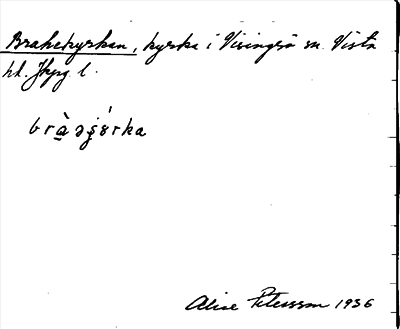 Brahekyrkan, kyrka i Visingsö sn. Vista
hd. Jkpg l.
Alice Petersson 1936